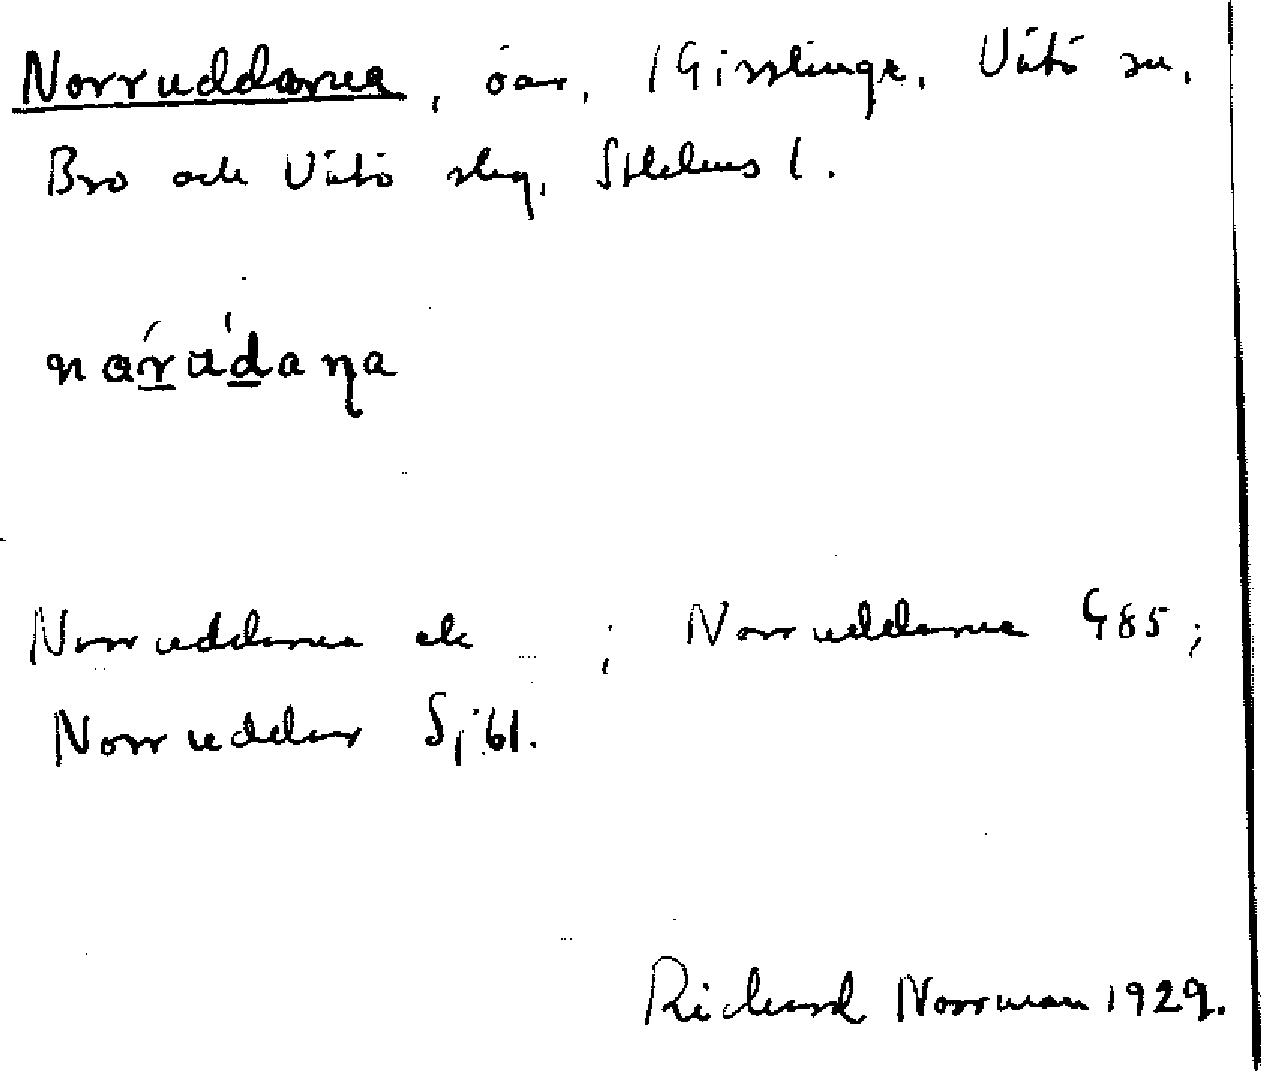 Norruddarna, öar, Gisslinge, Vätö sn,
Bro och Vätö skg, Sthlms l.
narudaṇa
Norruddarna ek ; Norruddarna G85;
Norruddar Sj 61.
Richard Norrman 1929.